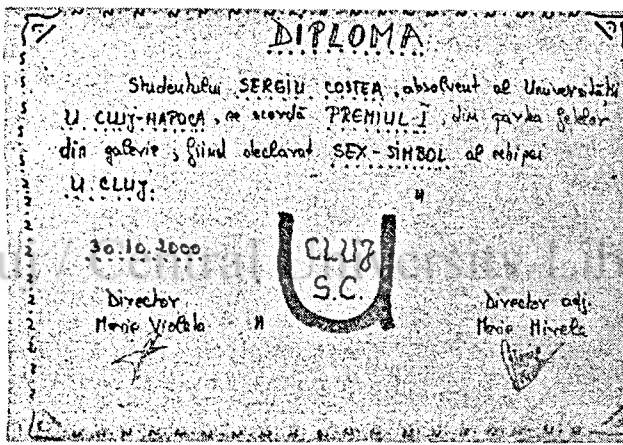 DIPLOMA
Studentului SERGIU COSTEA, absolvent al Universității
U CLUJ-NAPOCA, se acordă PREMIUL I, din partea fetelor
din galerie, fiind declarat SEX-SIMBOL al echipei
U CLUJ.
30.10.2000
CLUJ
S.C.
Central University Lib
Director
Director adj.
Violeta
Mirela